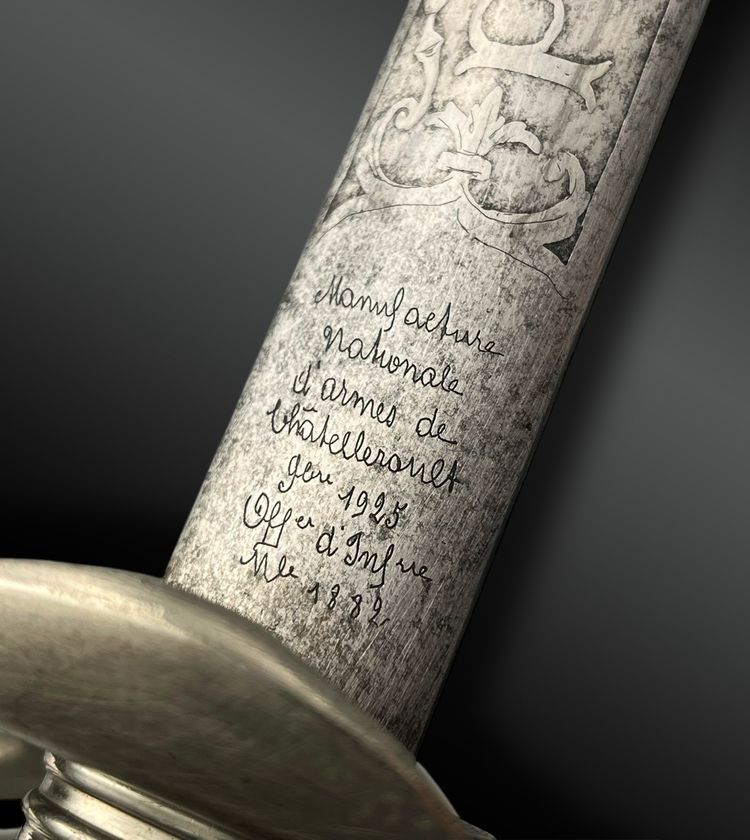 Manufacture
Nationale
d'armes de
Châtellerault
1925
Offer d'Infrie
Mle 1882